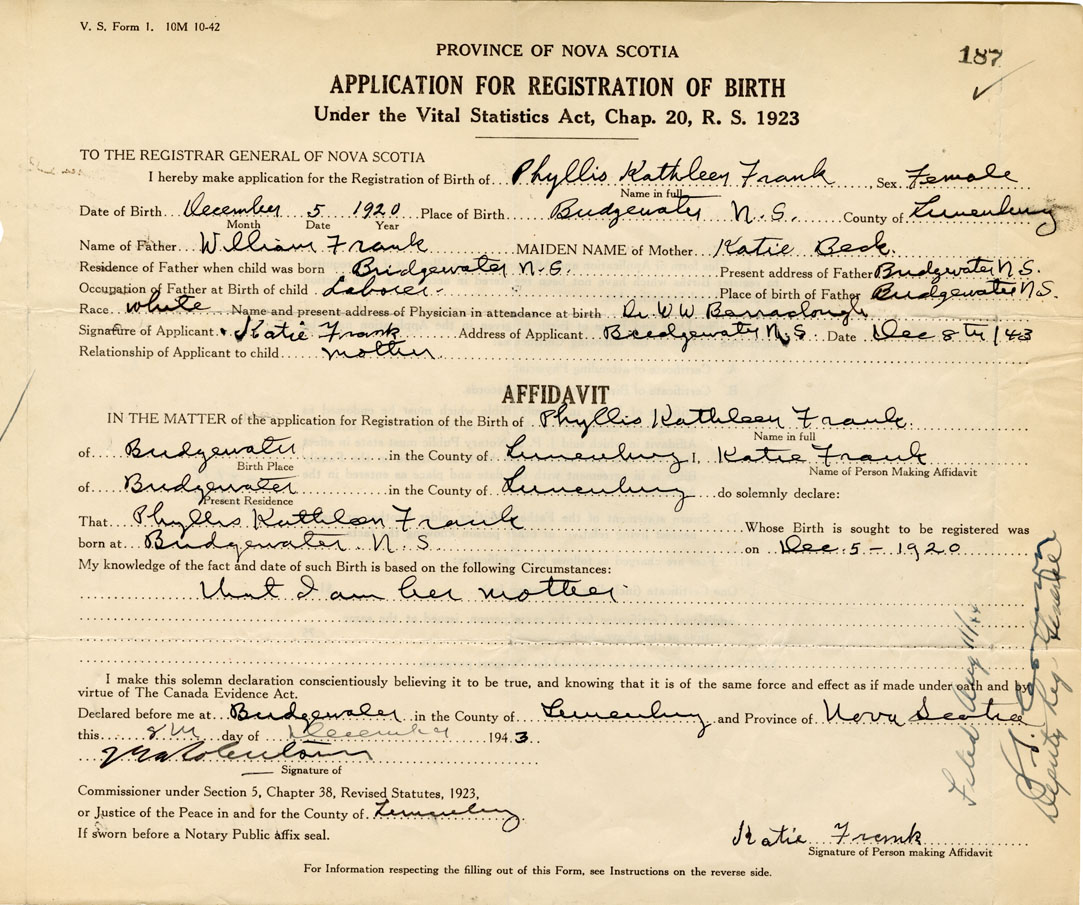 V. S. Form 1. 10M 10-42
PROVINCE OF NOVA SCOTIA
187
APPLICATION FOR REGISTRATION OF BIRTH
Under the Vital Statistics Act, Chap. 20, R. S. 1923
TO THE REGISTRAR GENERAL OF NOVA SCOTIA
I hereby make application for the Registration of Birth of Phyllis Kathleen Frank, Sex Female
Name in full
Date of Birth December 5 1920 Place of Birth Bridgewater N.S. County of Lunenburg
Month Date Year
Name of Father William Frank MAIDEN NAME of Mother Katie Beck
Residence of Father when child was born Bridgewater N.S. Present address of Father Bridgewater N.S.
Occupation of Father at Birth of child Laborer Place of birth of Father Bridgewater N.S.
Race white Name and present address of Physician in attendance at birth Dr. W W Barraclough
Signature of Applicant Katie Frank Address of Applicant Bridgewater N.S. Date Dec 8th /43
Relationship of Applicant to child mother
AFFIDAVIT
IN THE MATTER of the application for Registration of the Birth of Phyllis Kathleen Frank
Name in full
of Bridgewater in the County of Lunenburg I, Katie Frank
Birth Place Name of Person Making Affidavit
of Bridgewater in the County of Lunenburg do solemnly declare:
Present Residence
That Phyllis Kathleen Frank Whose Birth is sought to be registered was
born at Bridgewater N.S. on Dec 5 - 1920
My knowledge of the fact and date of such Birth is based on the following Circumstances:
that I am her mother
I make this solemn declaration conscientiously believing it to be true, and knowing that it is of the same force and effect as if made under oath and by
virtue of The Canada Evidence Act.
Declared before me at Bridgewater in the County of Lunenburg and Province of Nova Scotia
this 8th day of December 1943
Signature of
Commissioner under Section 5, Chapter 38, Revised Statutes, 1923,
or Justice of the Peace in and for the County of Lunenburg
If sworn before a Notary Public affix seal.
Katie Frank
Signature of Person making Affidavit
For Information respecting the filling out of this Form, see Instructions on the reverse side.
Filed Aug 11/44
Deputy Reg. General